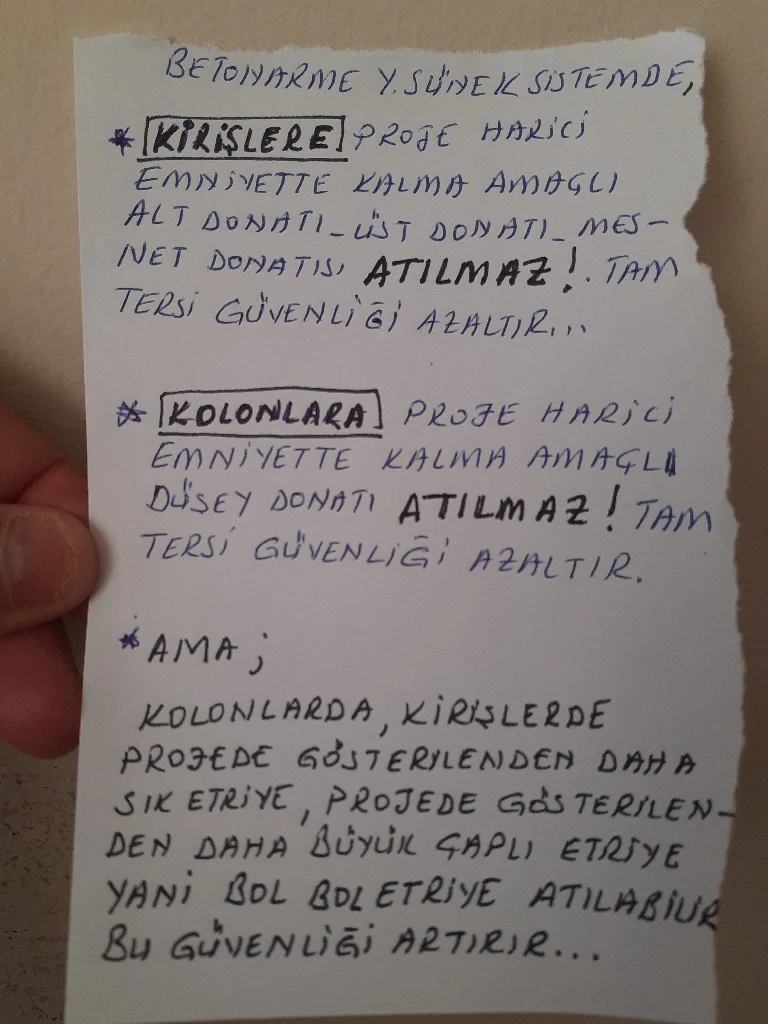 BETONARME Y. SÜNEK SİSTEMDE,
* KİRİŞLERE PROJE HARİCİ
EMNİYETTE KALMA AMAÇLI
ALT DONATI_ÜST DONATI_MES-
NET DONATISI ATILMAZ!. TAM
TERSİ GÜVENLİĞİ AZALTIR...
* KOLONLARA PROJE HARİCİ
EMNİYETTE KALMA AMAÇLI
DÜŞEY DONATI ATILMAZ! TAM
TERSİ GÜVENLİĞİ AZALTIR.
* AMA;
KOLONLARDA, KİRİŞLERDE
PROJEDE GÖSTERİLENDEN DAHA
SIK ETRİYE, PROJEDE GÖSTERİLEN-
DEN DAHA BÜYÜK ÇAPLI ETRİYE
YANİ BOL BOL ETRİYE ATILABİLİR
BU GÜVENLİĞİ ARTIRIR...